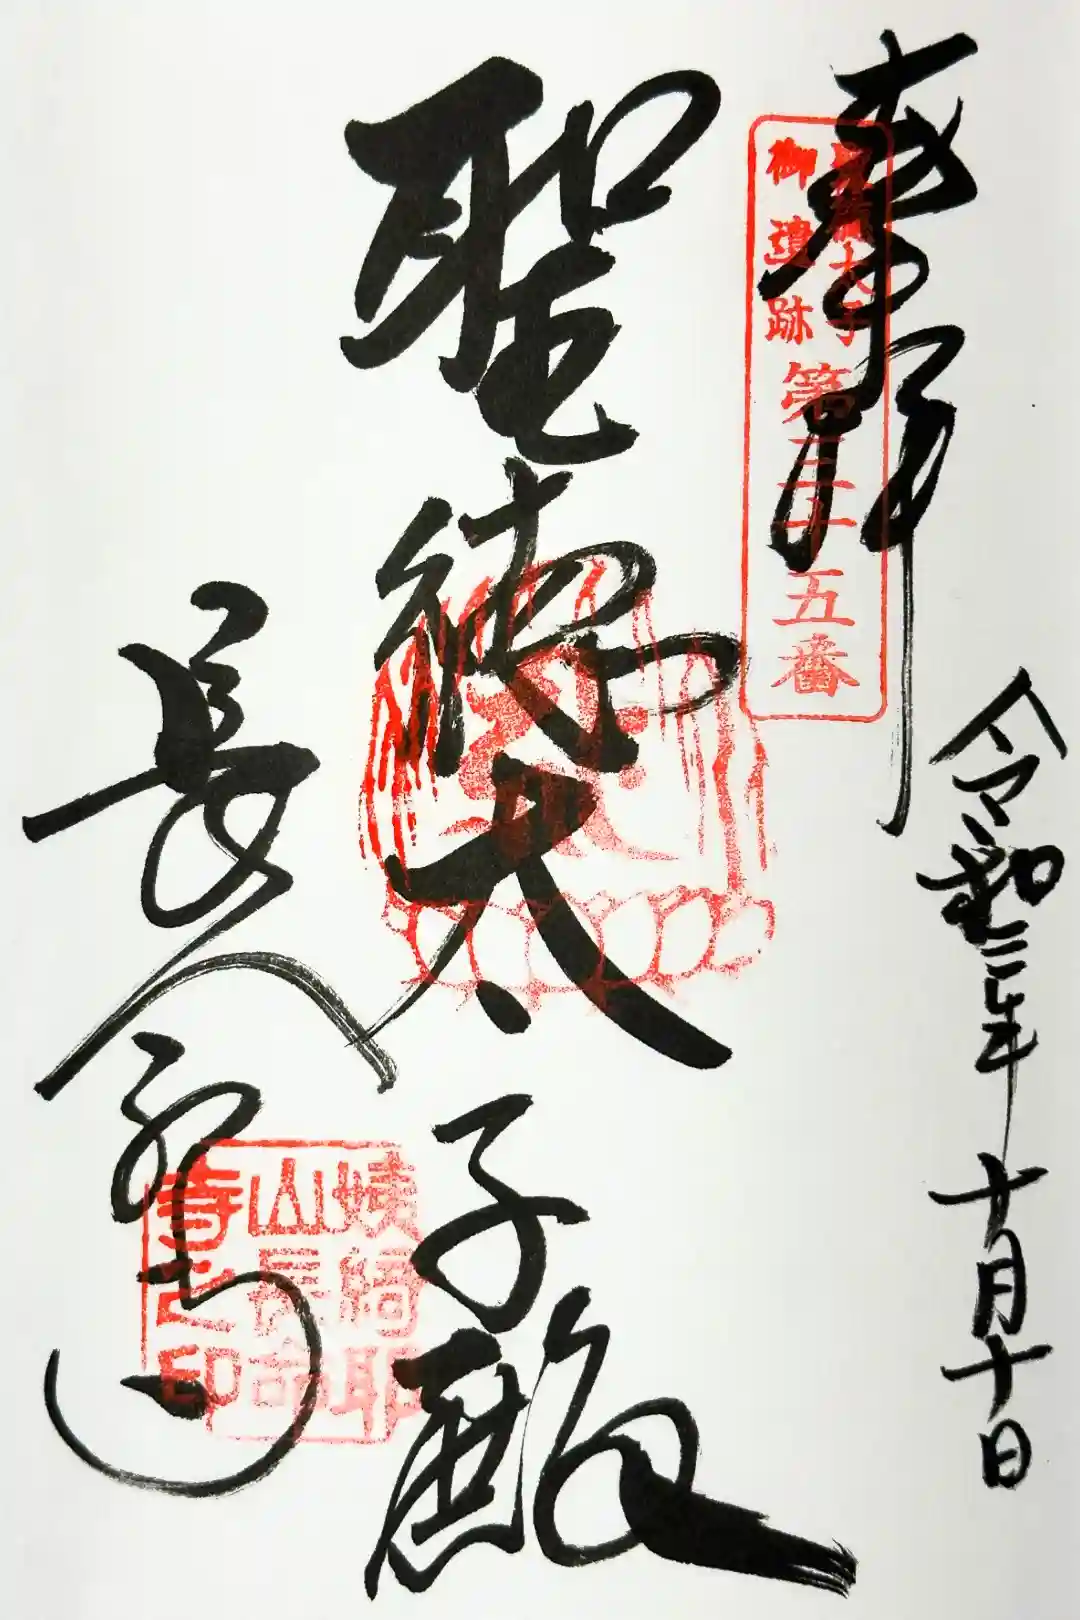 奉拝
令和三年十月十日
聖徳太子
御遺跡
第三十五番
聖徳太子殿
長命寺
姨綺耶
山長命
寺之印